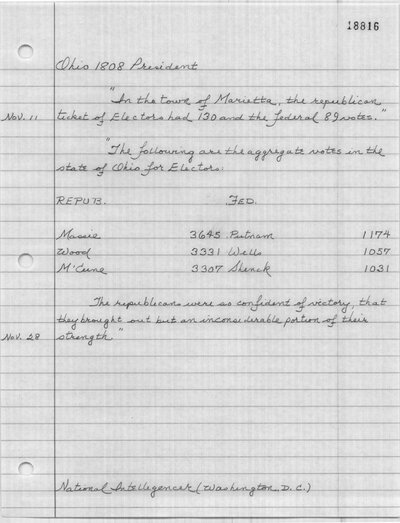 18816
Ohio 1808 President
"In the town of Marietta, the republican
Nov. 11 ticket of Electors had 130 and the federal 89 votes."
"The following are the aggregate votes in the
state of Ohio for Electors:
REPUB. FED.
Massie 3645 Putnam 1174
Wood 3331 Wells 1057
M'Cune 3307 Shenck 1031
The republicans were so confident of victory, that
they brought out but an inconsiderable portion of their
Nov. 28 strength."
National Intelligencer (Washington, D.C.)